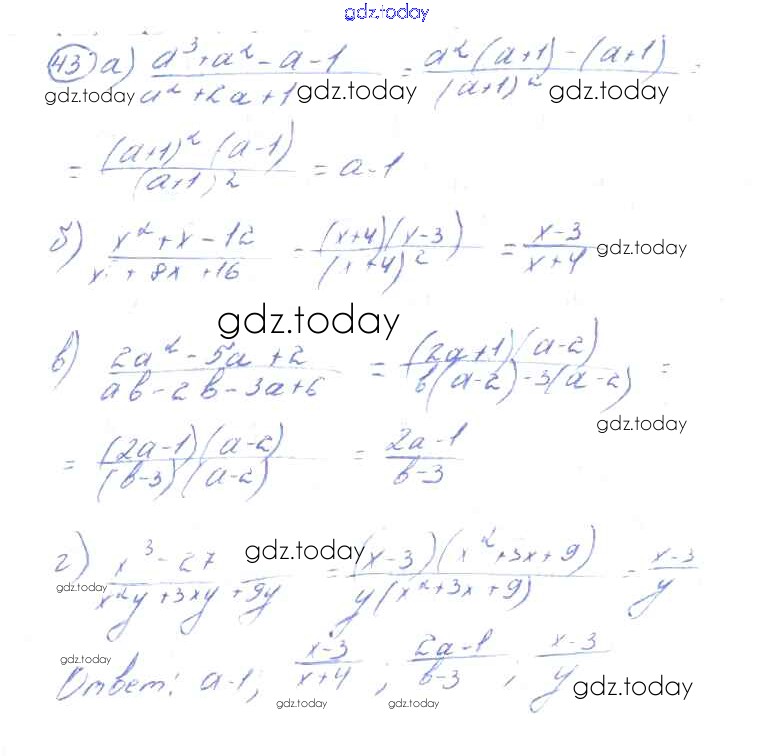 gdz.today
43) а) (a³ + a² - a - 1)/(a² + 2a + 1) = (a²(a+1) - (a+1))/((a+1)²) =
gdz.today gdz.today gdz.today
= ((a+1)²(a-1))/((a+1)²) = a-1
б) (x² + x - 12)/(x + 8x + 16) = ((x+4)(x-3))/((x+4)²) = (x-3)/(x+4) gdz.today
gdz.today
в) (2a² - 5a + 2)/(ab - 2b - 3a + 6) = ((2a+1)(a-2))/(b(a-2) - 3(a-2)) =
gdz.today
= ((2a-1)(a-2))/((b-3)(a-2)) = (2a-1)/(b-3)
г) (x³ - 27)/(x²y + 3xy + 9y) = ((x-3)(x² + 3x + 9))/(y(x² + 3x + 9)) = (x-3)/y
gdz.today gdz.today
gdz.today
Ответ: a-1; (x-3)/(x+4); (2a-1)/(b-3); (x-3)/y
gdz.today gdz.today gdz.today